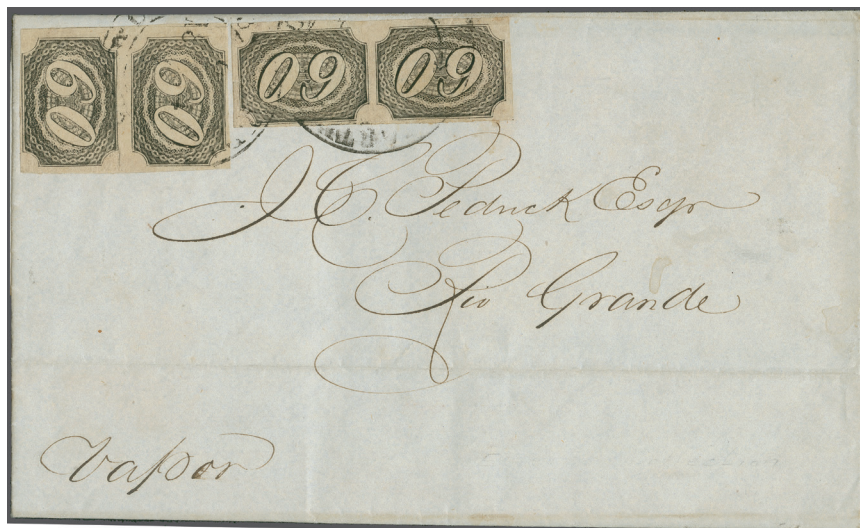 60 60 60 60
J. C. Pedrick Esqr
Rio Grande
Vapor